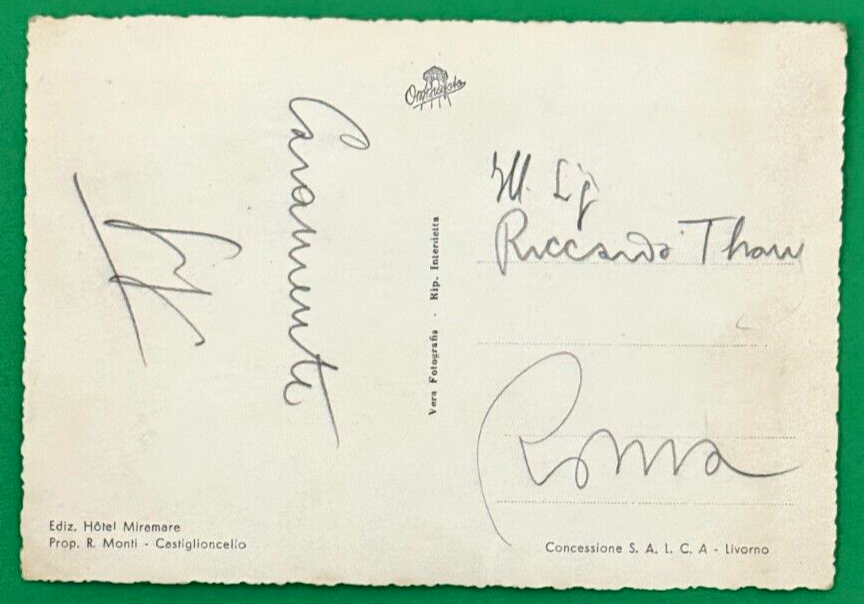 Caramente
Ill. Sig
Riccardo Thau
Roma
Vera Fotografia - Rip. Interdetta
Ediz. Hôtel Miramare
Prop. R. Monti - Castiglioncello
Concessione S. A. L. C. A - Livorno